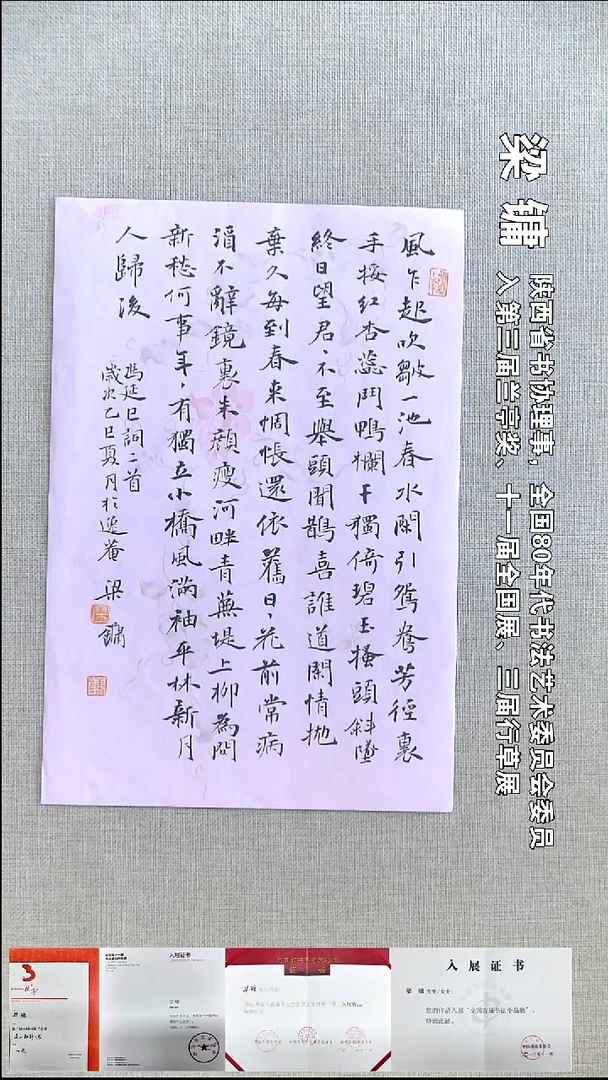 梁 镛
陕西省书协理事，全国80年代书法艺术委员会委员
入第三届兰亭奖、十一届全国展、三届行草展
風乍起吹皺一池春水閑引鴛鴦芳徑裏
手挼紅杏蕊鬥鴨欄干獨倚碧玉搔頭斜墜
終日望君々不至舉頭聞鵲喜誰道閑情拋
棄久每到春來惆悵還依舊日々花前常病
酒不辭鏡裏朱顏瘦河畔青蕪堤上柳為問
新愁何事年々有獨立小橋風滿袖平林新月
人歸後
馮延巳詞二首
歲次乙巳夏月於逸菴 梁鏞
入展证书
证 书
入 展 证 书
梁 镛 先生/女士：
特颁此证。